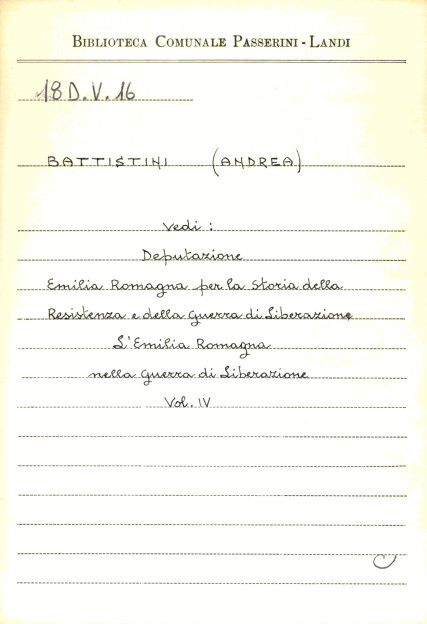 BIBLIOTECA COMUNALE PASSERINI - LANDI
18 D.V. 16
BATTISTINI (ANDREA)
Vedi :
Deputazione
Emilia Romagna per la Storia della
Resistenza e della Guerra di Liberazione
L'Emilia Romagna
nella Guerra di Liberazione
Vol. IV